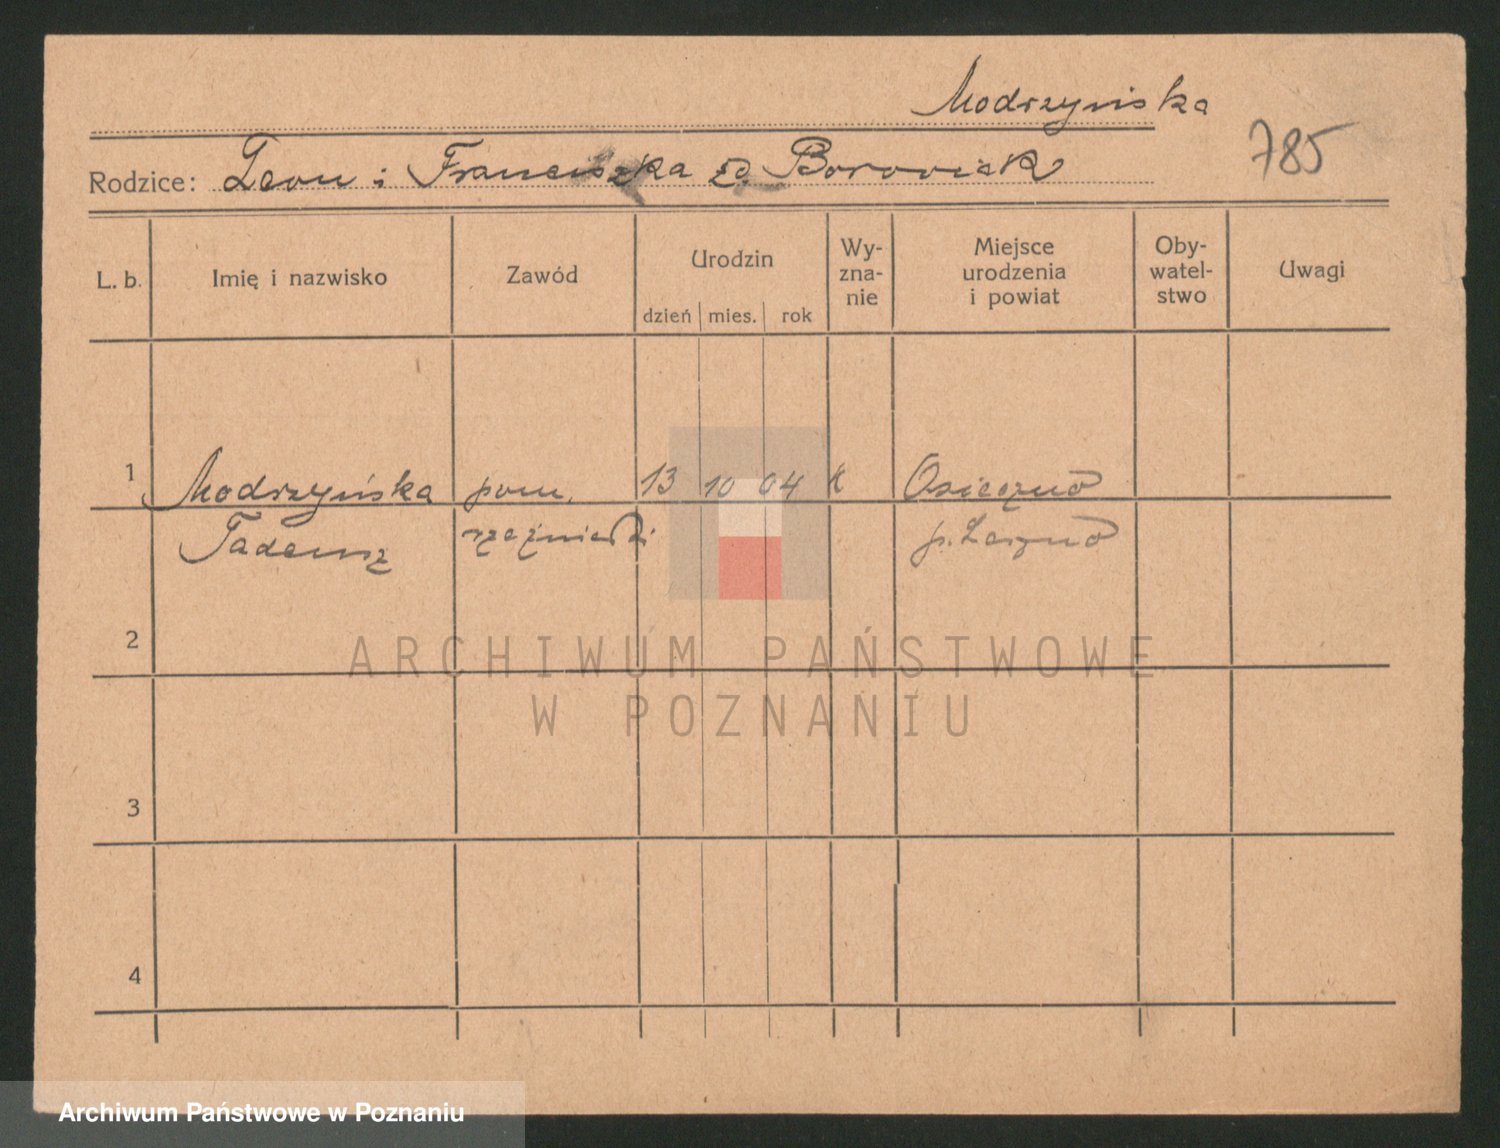 Modrzyńska
785
Rodzice: Leon i Franciszka z d. Borowiak
L. b. Imię i nazwisko Zawód Urodzin dzień mies. rok Wy-zna-nie Miejsce urodzenia i powiat Oby-watel-stwo Uwagi
1 Modrzyńska pom. 13 10 04 k Osieczno
Tadeusz rzeźnicki p. Leszno
2
ARCHIWUM PAŃSTWOWE
W POZNANIU
3
4
Archiwum Państwowe w Poznaniu